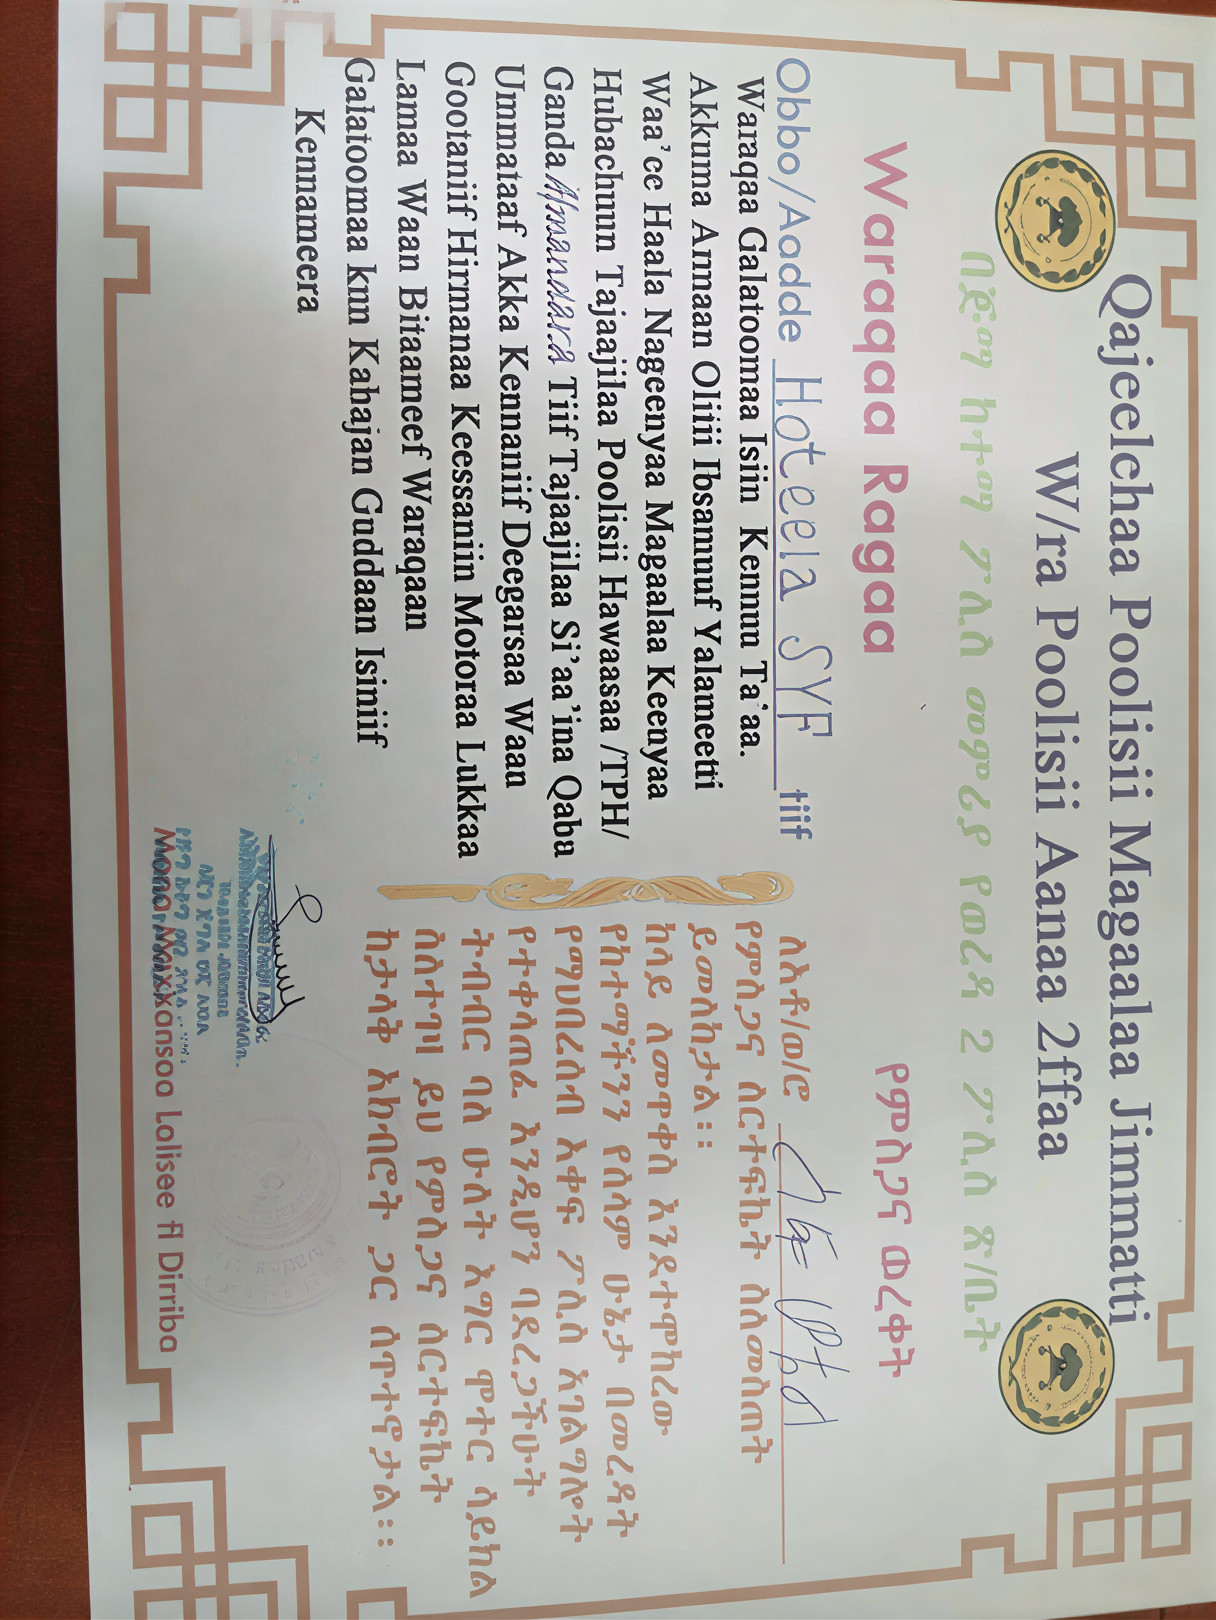 Qajeelchaa Poolisii Magaalaa Jimmatti
W/ra Poolisii Aanaa 2ffaa
በጅማ ከተማ ፖሊስ መምሪያ የወረዳ 2 ፖሊስ ጽ/ቤት
Waraqaa Ragaa
Obbo/Aadde Hoteela SYF tiif
Waraqaa Galatoomaa Isiin Kennuu Ta'aa.
Akkuma Armaan Oliiti Ibsamuuf Yalameetti
Waa'ee Haala Nageenyaa Magaalaa Keenyaa
Hubachuun Tajaajilaa Poolisii Hawaasaa /TPH/
Ganda Tiif Tajaajilaa Si'aa'ina Qabu
Ummataaf Akka Kennaniif Deegarsaa Waan
Gootaniif Hirmanaa Keessaniin Motoraa Lukkaa
Lamaa Waan Bitaameef Waraqaan
Galatoomaa kun Kabajan Guddaan Isiniif
Kennameera
የምስጋና ወረቀት
ለአቶ/ወ/ሮ
የምስጋና ሰርተፍኬት ስለመስጠት
ይመለከታል፡፡
ከላይ ለመጥቀስ እንደተሞከረው
የከተማችንን የሰላም ሁኔታ በመረዳት
የማህበረሰብ አቀፍ ፖሊስ አገልግሎት
የተቀላጠፈ እንዲሆን ባደረጋችሁት
ትብብር ባለ ሁለት እግር ሞተር ሳይክል
ስለተገዛ ይህ የምስጋና ሰርተፍኬት
ከታላቅ አክብሮት ጋር ለጥተኖታል፡፡
Mana Maxxansaa Lalisee fi Dirriba